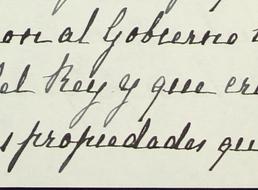 on al Gobierno
del Rey y que cre
s propiedades que